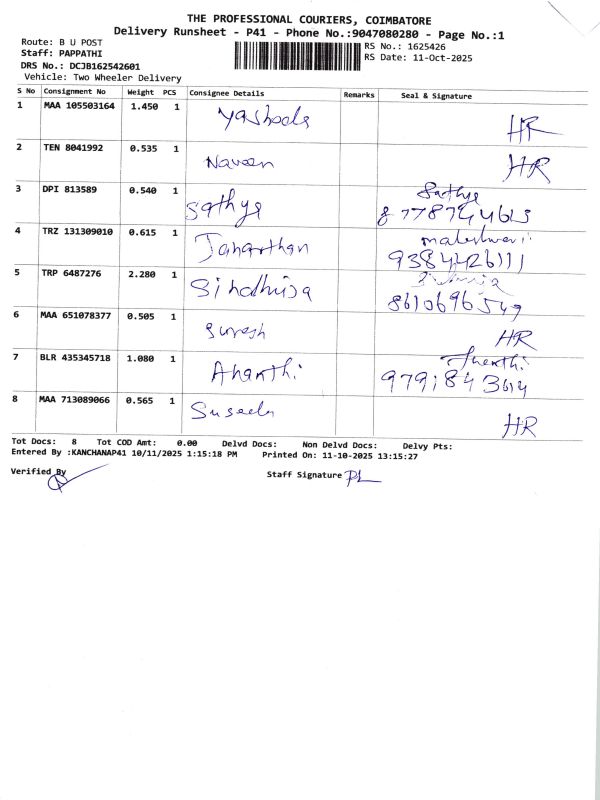 THE PROFESSIONAL COURIERS, COIMBATORE
Delivery Runsheet - P41 - Phone No.:9047080280 - Page No.:1
Route: B U POST
RS No.: 1625426
Staff: PAPPATHI
RS Date: 11-Oct-2025
DRS No.: DCJB162542601
Vehicle: Two Wheeler Delivery
S No Consignment No Weight PCS Consignee Details Remarks Seal & Signature
1 MAA 105503164 1.450 1 Yashoda HR
2 TEN 8041992 0.535 1 Naveen HR
3 DPI 813589 0.540 1 Sathya Sathya
4 TRZ 131309010 0.615 1 Janarthan
5 TRP 6487276 2.280 1
8610696549
6 MAA 651078377 0.505 1 Suresh HR
7 BLR 435345718 1.080 1 Ananthi
8 MAA 713089066 0.565 1 Suseela HR
Tot Docs: 8 Tot COD Amt: 0.00 Delvd Docs: Non Delvd Docs: Delvy Pts:
Entered By :KANCHANAP41 10/11/2025 1:15:18 PM Printed On: 11-10-2025 13:15:27
Verified By Staff Signature